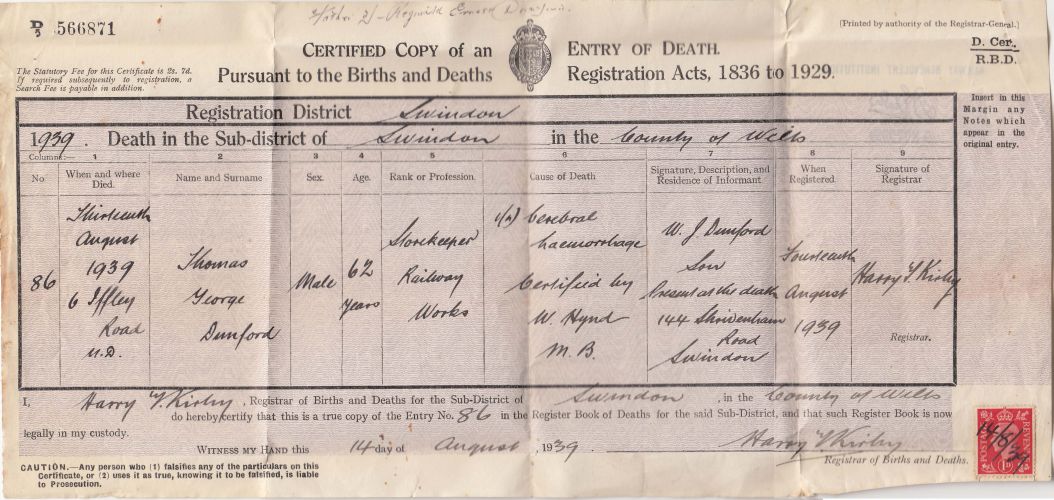 D/5 566871
Reginald Ernest Dunford
[Printed by authority of the Registrar-General.]
CERTIFIED COPY OF AN ENTRY OF DEATH.
D. Cer.
R.B.D.
The Statutory Fee for this Certificate is 2s. 7d.
If required subsequently to registration, a
Search Fee is payable in addition.
Pursuant to the Births and Deaths Registration Acts, 1836 to 1929.
Registration District Swindon
Insert in this
Margin any
Notes which
appear in the
original entry.
1939. Death in the Sub-district of Swindon in the County of Wilts
Columns:— 1 2 3 4 5 6 7 8 9
No. When and where Died. Name and Surname Sex. Age. Rank or Profession. Cause of Death Signature, Description, and Residence of Informant When Registered. Signature of Registrar
86
Thirteenth
August
1939
6 Iffley
Road
U.D.
Thomas
George
Dunford
Male
62
Years
Storekeeper
Railway
Works
1(a) Cerebral
haemorrhage
Certified by
W. Hynd
M.B.
W. J. Dunford
Son
Present at the death
144 Shrivenham
Road
Swindon
Fourteenth
August
1939
Harry T. Kirby
Registrar.
I, Harry T. Kirby, Registrar of Births and Deaths for the Sub-District of Swindon, in the County of Wilts
do hereby certify that this is a true copy of the Entry No. 86 in the Register Book of Deaths for the said Sub-District, and that such Register Book is now
legally in my custody.
WITNESS MY HAND this 14 day of August, 1939. Harry T. Kirby
Registrar of Births and Deaths.
CAUTION.—Any person who (1) falsifies any of the particulars on this
Certificate, or (2) uses it as true, knowing it to be falsified, is liable
to Prosecution.
POSTAGE REVENUE
1D
14/8/39